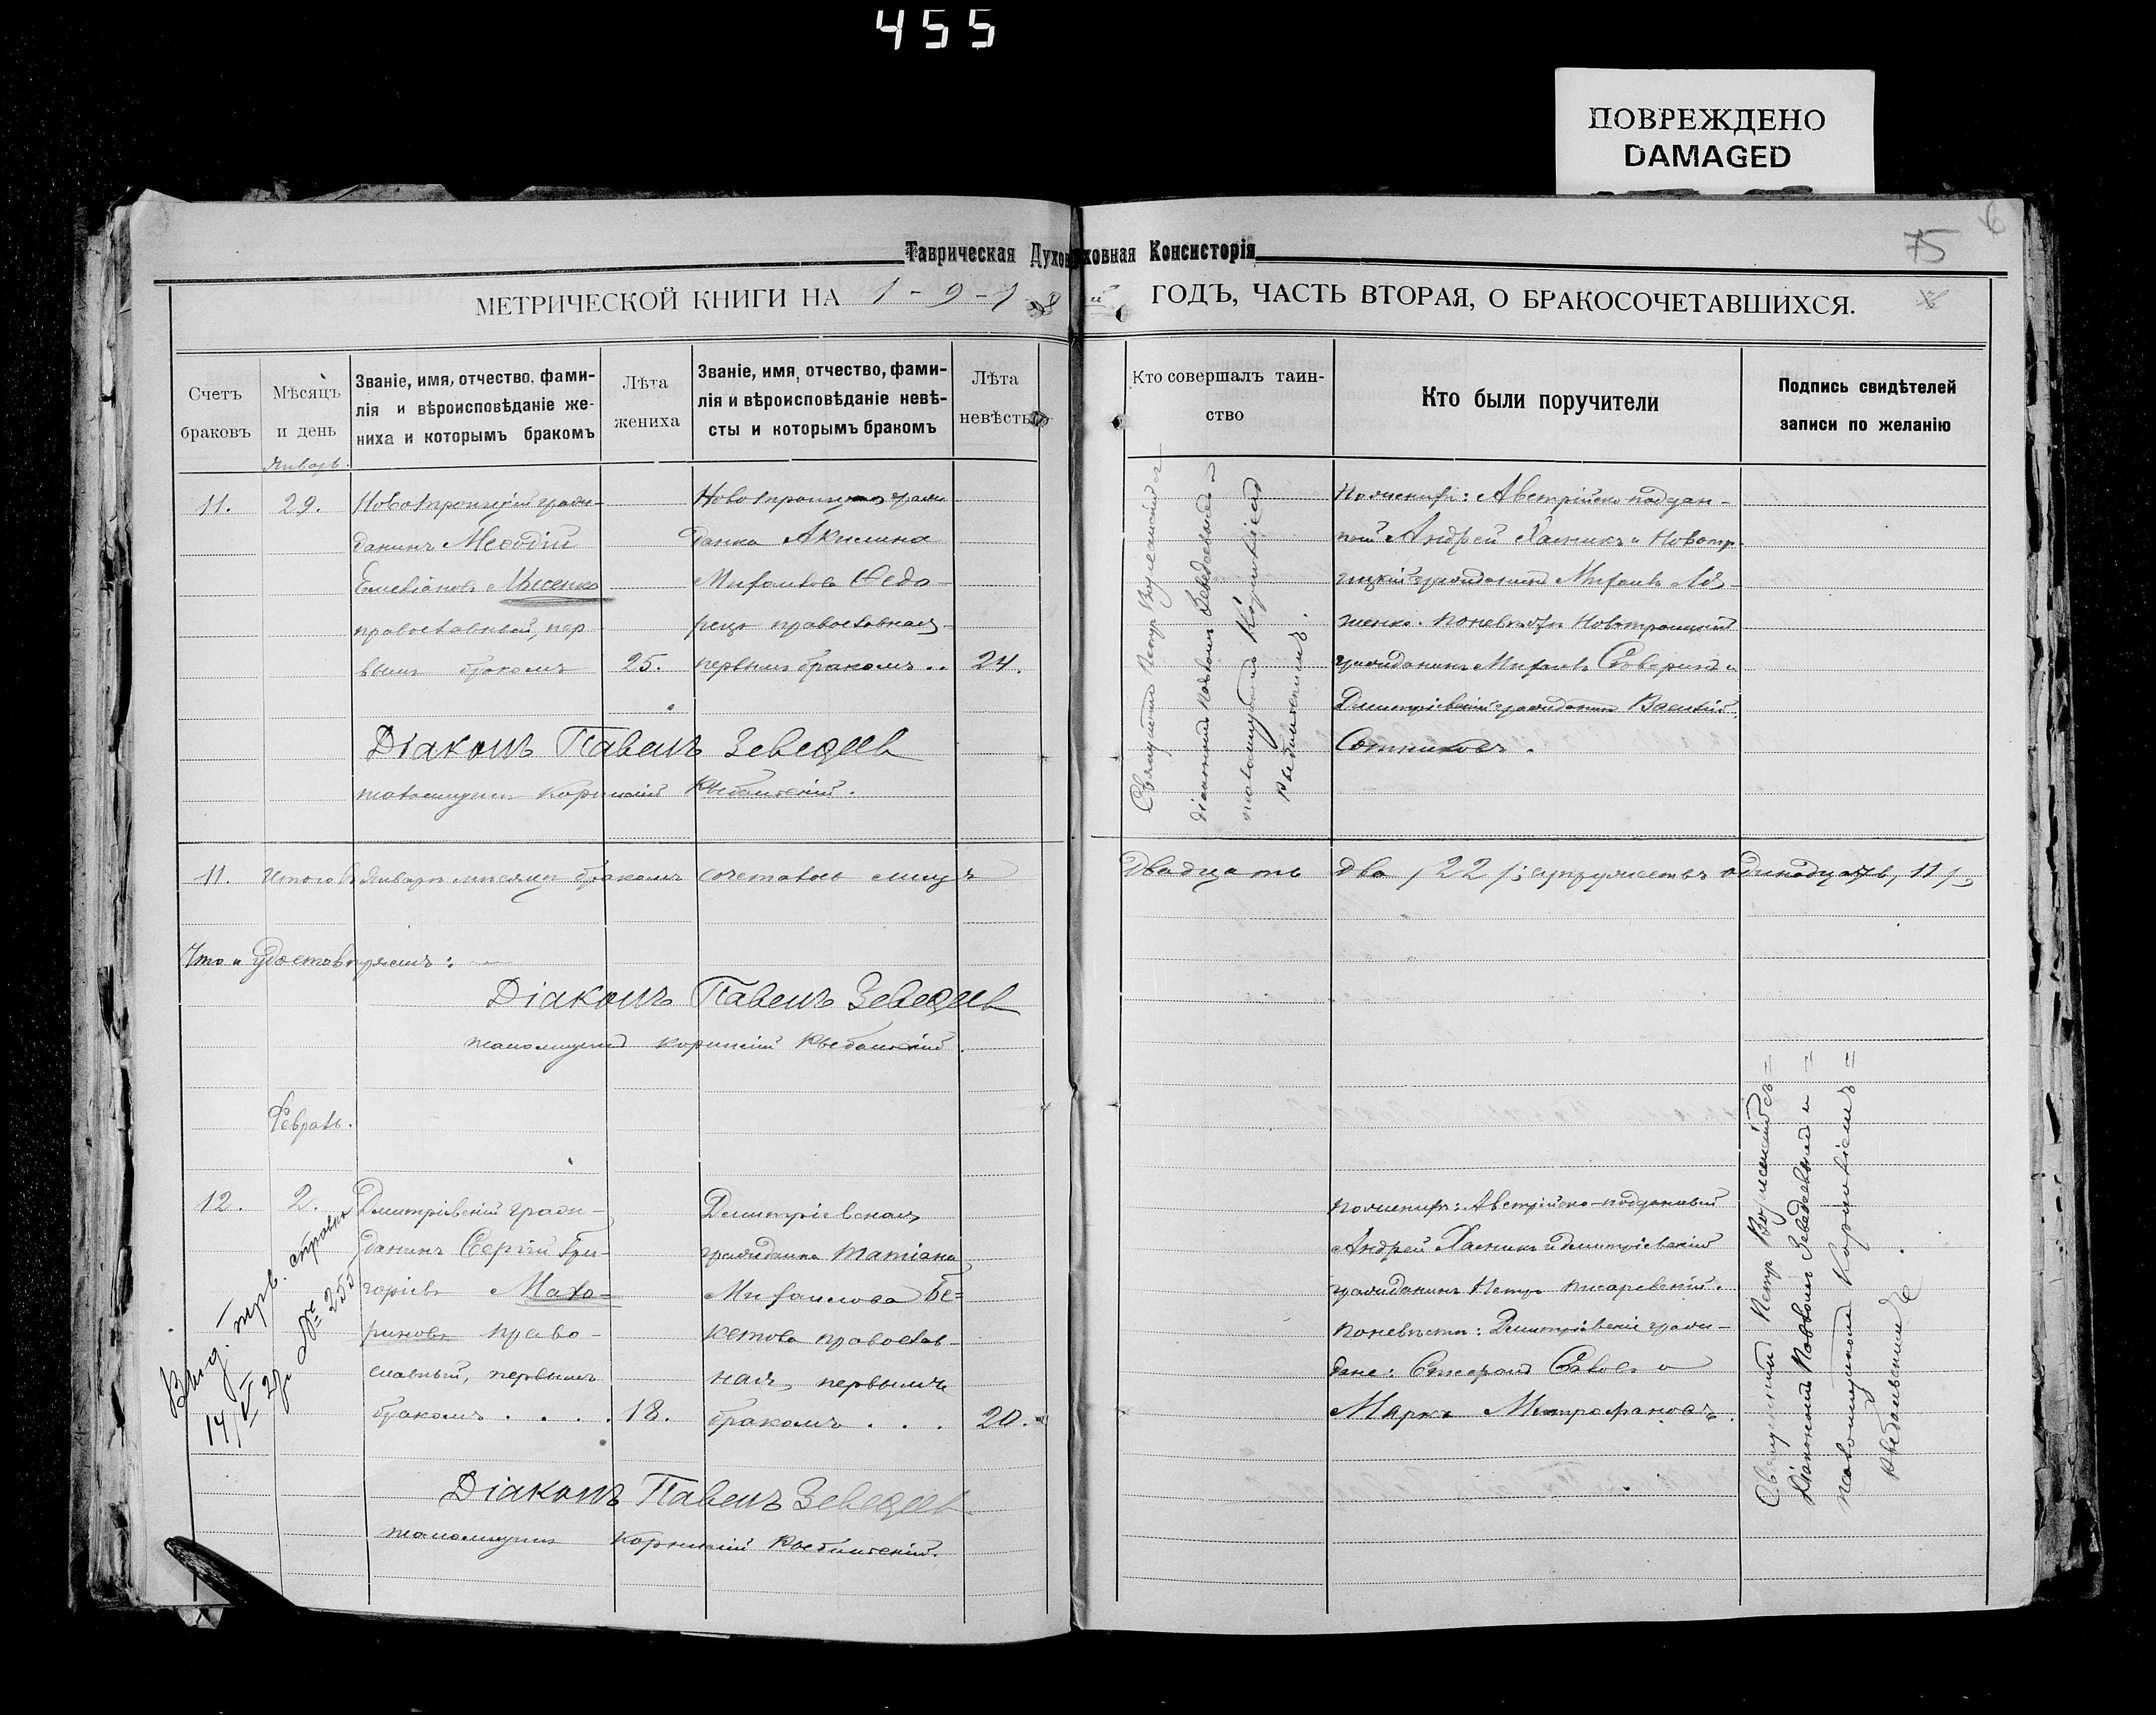 455
ПОВРЕЖДЕНО
DAMAGED
6
75
Таврическая Духовная Консисторія
МЕТРИЧЕСКОЙ КНИГИ НА 1-9-18 й ГОДЪ, ЧАСТЬ ВТОРАЯ, О БРАКОСОЧЕТАВШИХСЯ.
Счетъ браковъ
Мѣсяцъ и день
Званіе, имя, отчество, фами-
лія и вѣроисповѣданіе же-
ниха и которымъ бракомъ
Лѣта жениха
Званіе, имя, отчество, фами-
лія и вѣроисповѣданіе невѣ-
сты и которымъ бракомъ
Лѣта невѣсты
Кто совершалъ таин-
ство
Кто были поручители
Подпись свидѣтелей
записи по желанію
Январь.
11.
29.
Новотроицкій граж-
данинъ Меѳодій
Емеліановъ Мисенко
православный, пер-
вымъ бракомъ
25.
Новотроицкая граж
данка Акилина
Михаилова Ѳедо-
рецъ православная
первымъ бракомъ..
24.
Священникъ Петръ
діаконом Павломъ Зеведеевымъ и
псаломщикомъ Корниліемъ
По женихѣ: Австрійско-поддан-
ный Андрей Хасникъ и Новотр
ицкій гражданинъ Михаилъ
По невѣстѣ Новотроицкій
гражданинъ Михаилъ Северинъ и
Димитріевскій гражданинъ Василій
Сотниковъ.
Діаконъ Павелъ Зеведеев
псаломщикъ Корнилій
11. Итого въ Январѣ мѣсяцѣ бракомъ сочеталось лицъ двадцать два /22/; супружествъ одинадцать, 11/
Что и удостовѣряемъ:
Діаконъ Павелъ Зеведеев
псаломщикъ Корнилій
Февраль.
12.
2.
Димитріевскій граж-
данинъ Сергій Гри-
горіевъ Махо-
риновъ право-
славный, первымъ
бракомъ....
18.
Димитріевская
гражданка Татіана
Михаилова Бе=
кетова православ-
ная, первымъ
бракомъ...
20.
Выд. справка
14/VI 27 № 255
По женихѣ: Австрійско-подданный
Андрей Хасникъ и Димитріевскій
гражданинъ Петръ Писаревскій.
По невѣстѣ: Димитріевскіе граж-
дане: Стефанъ Савовъ и
Маркъ Митрофановъ.
Священникъ Петръ
Діакономъ Павломъ Зеведеевымъ и =
псаломщикомъ Корниліемъ =
Діаконъ Павелъ Зеведеев
псаломщикъ Корнилій